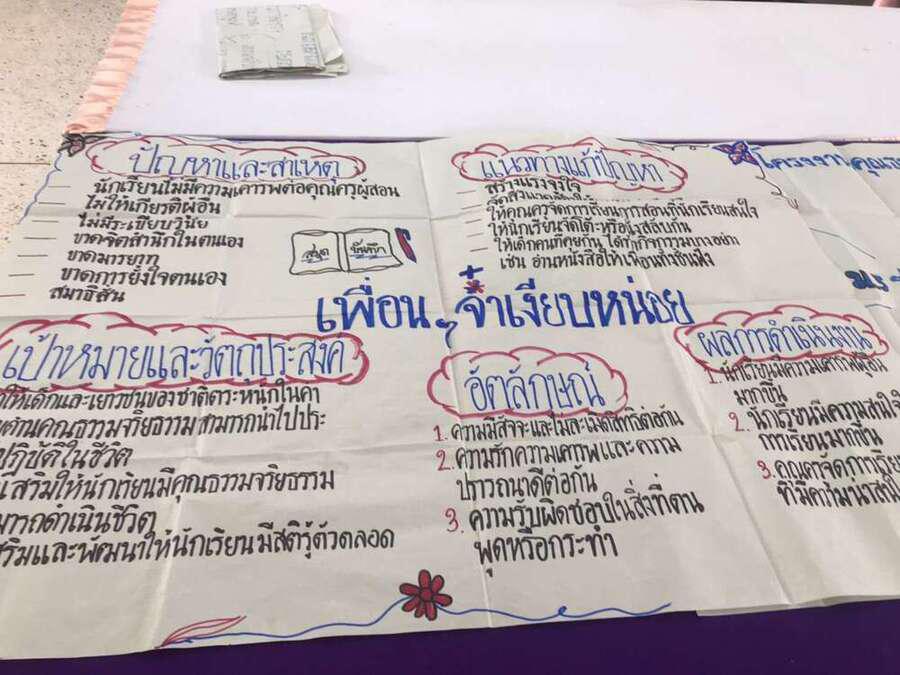 ปัญหาและสาเหตุ
นักเรียนไม่มีความเคารพต่อคุณครูผู้สอน
ไม่ให้เกียรติผู้อื่น
ไม่มีระเบียบวินัย
ขาดจิตสำนึกในตนเอง
ขาดมารยาท
ขาดการยั้งใจตนเอง
สมาธิสั้น
สมุด บันทึก
แนวทางแก้ปัญหา
สร้างแรงจูงใจ
ให้คุณครูจัดการเรียนการสอนที่นักเรียนสนใจ
ให้นักเรียนจัดโต๊ะหรือนั่งสลับกัน
ให้เด็กคนที่คุยกัน ได้ทำกิจกรรมบางอย่าง
เช่น อ่านหนังสือให้เพื่อนทั้งชั้นฟัง
โครงงานคุณธ
เพื่อน ๆ จ๋าเงียบหน่อย
เป้าหมายและวัตถุประสงค์
ให้เด็กและเยาวชนของชาติตระหนักในคุณค่า
ด้านคุณธรรมจริยธรรม สามารถนำไปประ
ปฏิบัติในชีวิต
เสริมให้นักเรียนมีคุณธรรมจริยธรรม
มารถดำเนินชีวิต
ริมและพัฒนาให้นักเรียน มีสติรู้ตัวตลอด
อัตลักษณ์
1. ความมีสัจจะและไม่ละเมิดสิทธิต่อกัน
2. ความรักความเคารพและความ
ปรารถนาดีต่อกัน
3. ความรับผิดชอบในสิ่งที่ตน
พูดหรือกระทำ
ผลการดำเนินงาน
1. นักเรียนมีความเคารพผู้อื่น
มากขึ้น
2. นักเรียนมีความสนใจ
การเรียนมากขึ้น
3. คุณครูจัดการเรีย
ที่มีความน่าสนใ